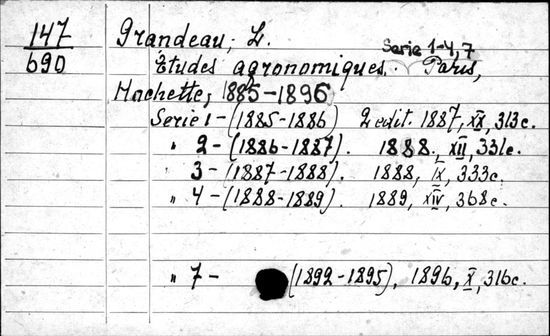 147
690
Grandeau, L.
Serie 1-4, 7
Études agronomiques. Paris,
Hachette, 1885-1896
Serie 1 - (1885-1886) 2 edit. 1887, XX, 313 c.
" 2 - (1886-1887). 1888, XII, 331 c.
3 - (1887-1888). 1888, IX, 333 c.
" 4 - (1888-1889). 1889, XIV, 368 c.
" 7 - (1892-1895), 1896, X, 316 c.